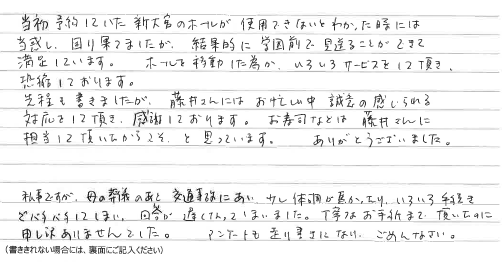 当初予約していた新大宮のホールが使用できないとわかった時には
当惑し、困り果てましたが、結果的に学園前で見送ることができて
満足しています。 ホールを移動した為か、いろいろサービスをして頂き、
恐縮しております。
先程も書きましたが、藤井さんにはお忙しい中 誠意の感じられる
対応をして頂き、感謝しております。お寿司などは 藤井さんに
担当して頂いたからこそ、と思っています。 ありがとうございました。
私事ですが、母の葬儀のあと 交通事故にあい、少し体調が悪かったり、いろいろ手続き
でバタバタしてしまい、回答が遅くなってしまいました。丁寧なお手紙まで頂いたのに
申し訳ありませんでした。 アンケートも走り書きになり、ごめんなさい。
(書ききれない場合には、裏面にご記入ください)